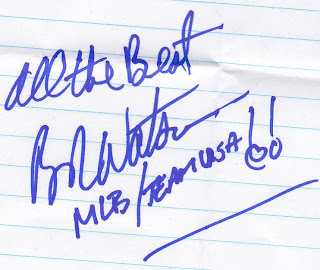 All the Best
Bob Watson
MLB/TEAM USA!!